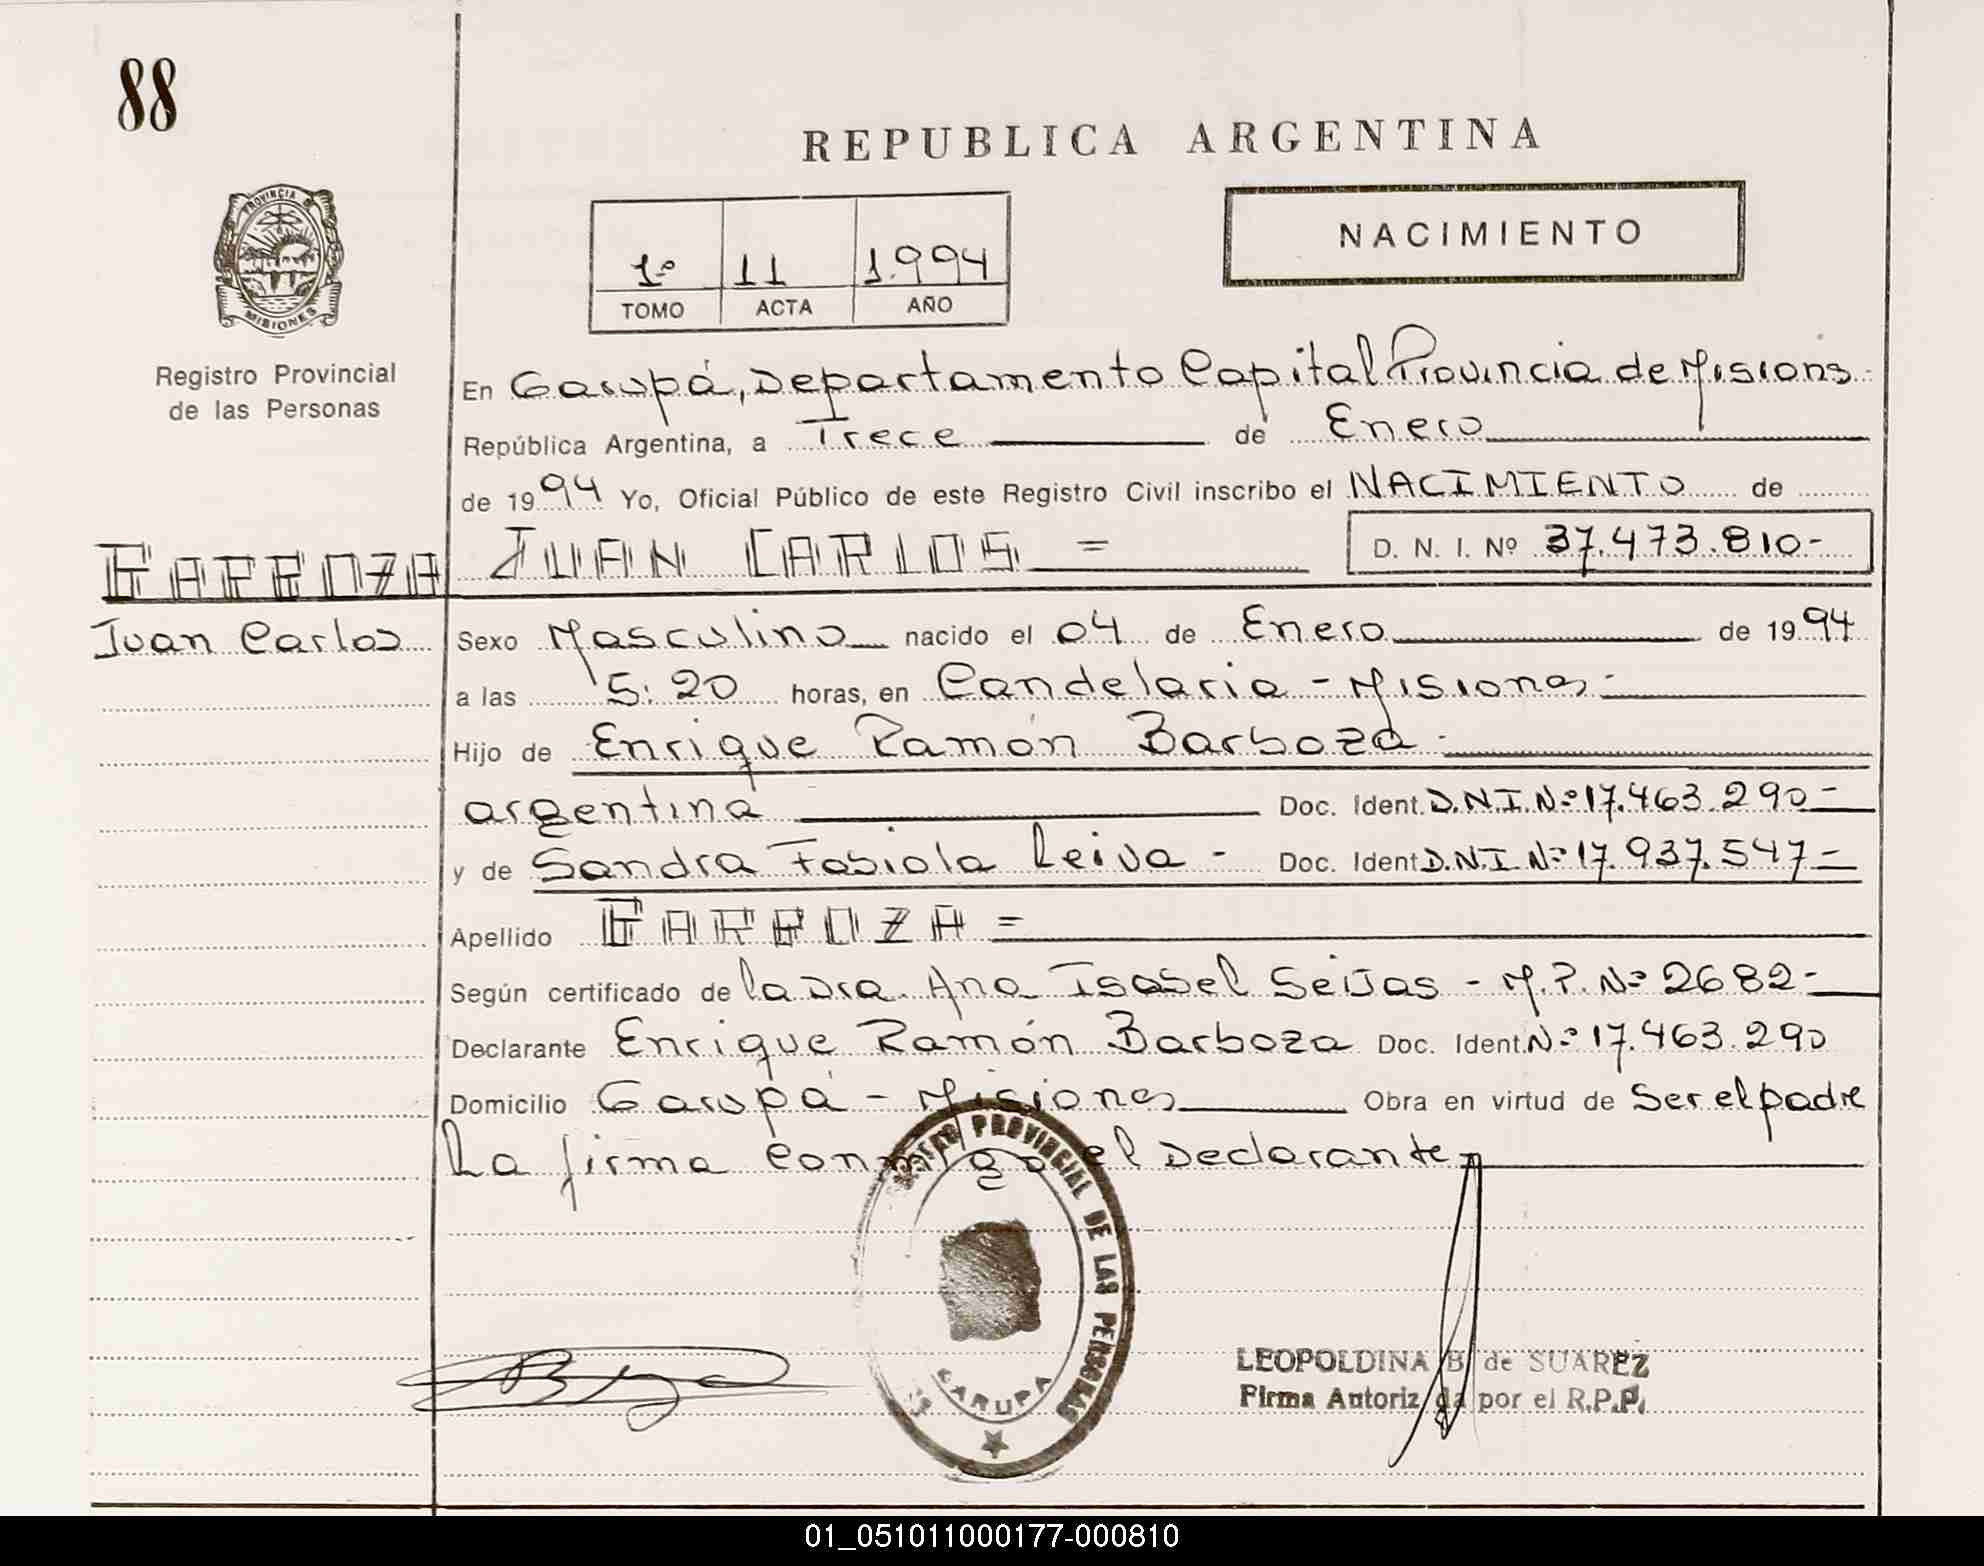 88
REPUBLICA ARGENTINA
PROVINCIA
MISIONES
Registro Provincial
de las Personas
1º 11 1.994
TOMO ACTA AÑO
NACIMIENTO
En Garupá, Departamento Capital Provincia de Misions.
República Argentina, a Trece de Enero
de 1994 Yo, Oficial Público de este Registro Civil inscribo el NACIMIENTO de
BARBOZA JUAN CARLOS = D. N. I. Nº 37.473.810-
Juan Carlos
Sexo Masculino nacido el 04 de Enero de 1994
a las 5:20 horas, en Candelaria - Misiones-
Hijo de Enrique Ramón Barboza-
argentina Doc. Ident. D.N.I. Nº 17.463.290-
y de Sandra Fabiola Leiva - Doc. Ident D.N.I Nº 17.937.547-
Apellido BARBOZA =
Según certificado de la Dra. Ana Isabel Seijas - M.P. Nº 2682-
Declarante Enrique Ramón Barboza Doc. Ident. Nº 17.463.290
Domicilio Garupá - Misiones Obra en virtud de Ser el padre
La firma conmigo el Declarante-
PROVINCIAL DE LAS PERSONAS
GARUPA
LEOPOLDINA B. de SUAREZ
Firma Autorizada por el R.P.P.
01_051011000177-000810